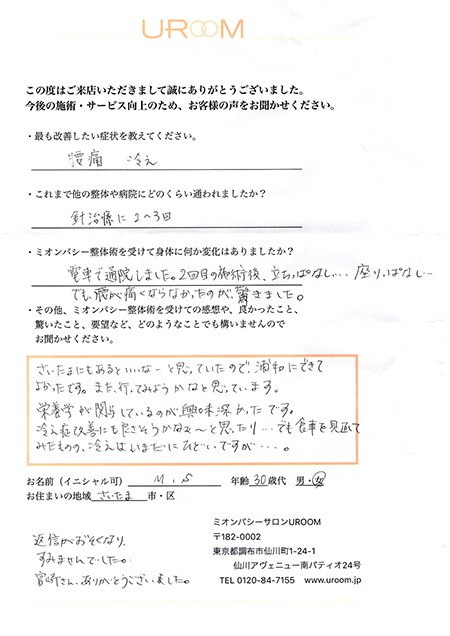 UROOM
この度はご来店いただきまして誠にありがとうございました。
今後の施術・サービス向上のため、お客様の声をお聞かせください。
・最も改善したい症状を教えてください。
腰痛 冷え
・これまで他の整体や病院にどのくらい通われましたか？
針治療に2〜3回
・ミオンパシー整体術を受けて身体に何か変化はありましたか？
電車で通院しました。2回目の施術後、立ちっぱなし… 座りっぱなし…
でも、腰が痛くならなかったのが、驚きました。
・その他、ミオンパシー整体術を受けての感想や、良かったこと、
驚いたこと、要望など、どのようなことでも構いませんので
お聞かせください。
さいたまにもあるといいなーと思っていたので、浦和にできて
よかったです。また、行ってみようかなと思っています。
栄養学が関与しているのが興味深かったです。
冷え症改善にも良さそうかなぁ〜と思ったり…でも食事を見直して
みたものの、冷えはいまだにひどいですが…。
お名前（イニシャル可） M.S 年齢 30歳代 男・女
お住まいの地域 さいたま 市・区
返信がおそくなり、
すみませんでした。
宮町さん、ありがとうございました。
ミオンパシーサロンUROOM
〒182-0002
東京都調布市仙川町1-24-1
仙川アヴェニュー南パティオ24号
TEL 0120-84-7155 www.uroom.jp